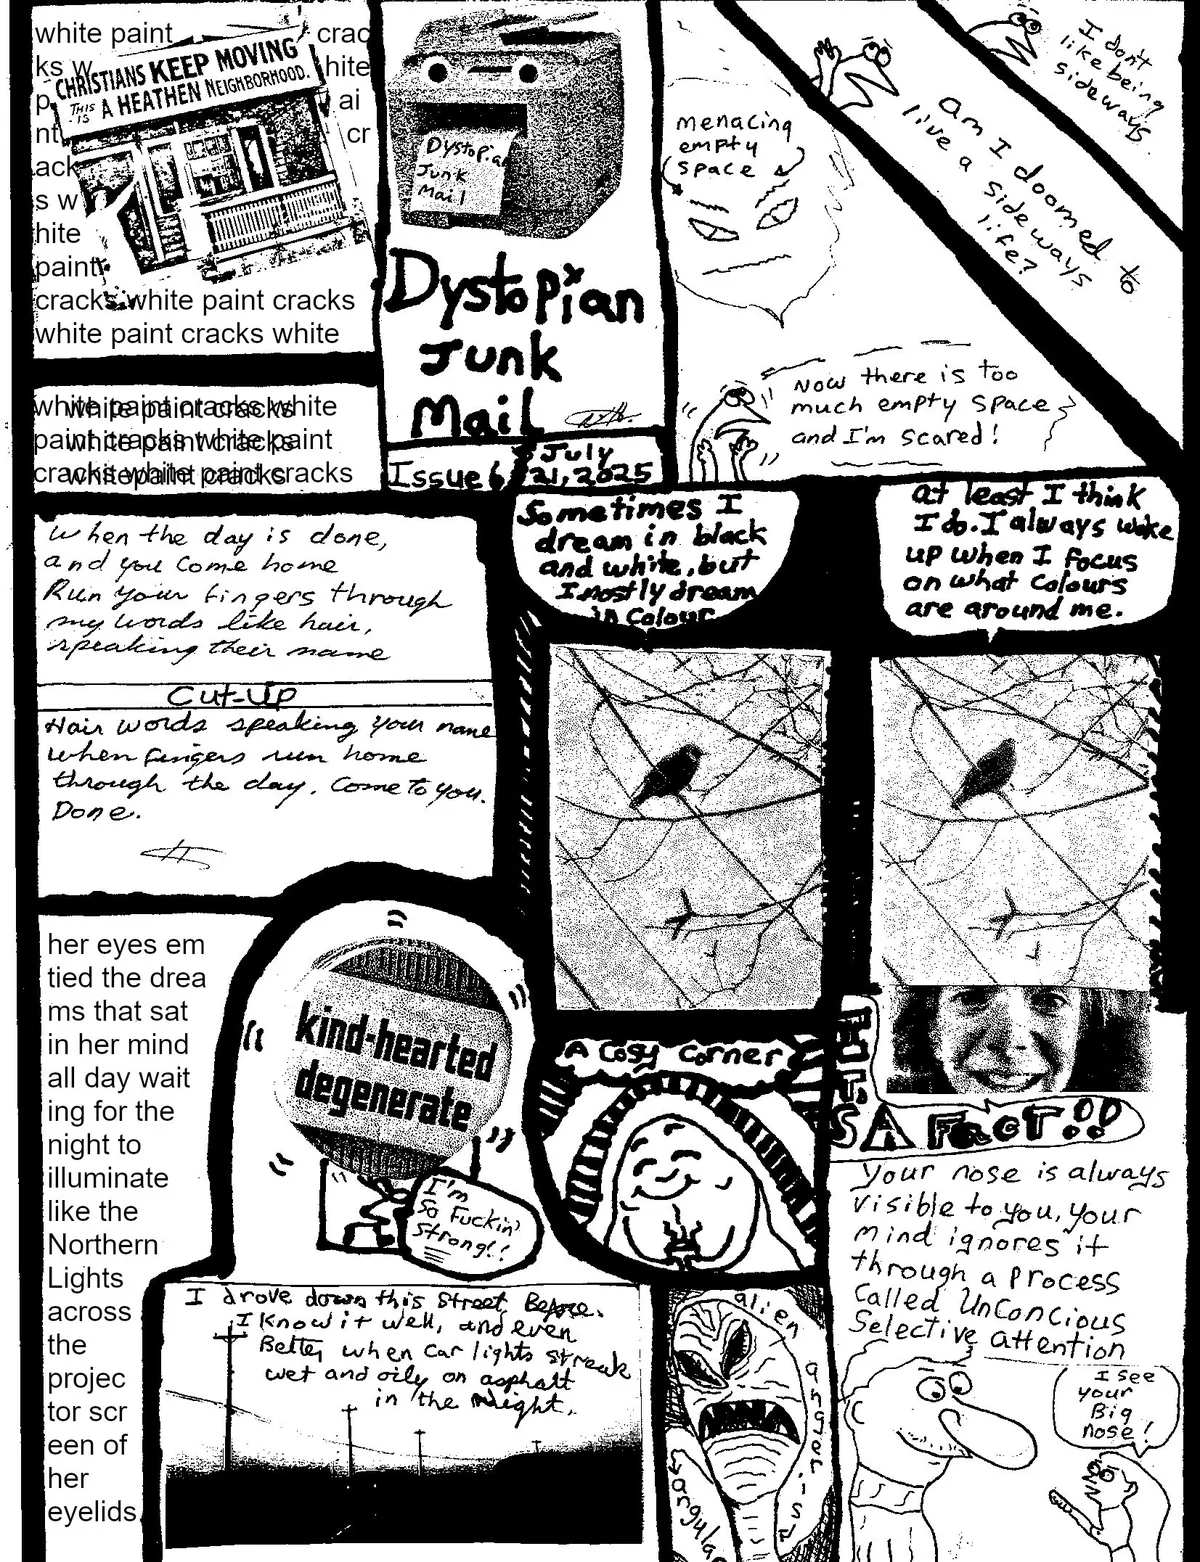 white paint crac
ks w hite
p ai
nt cr
ack
s w
hite
paint
cracks white paint cracks
white paint cracks white
CHRISTIANS KEEP MOVING
THIS IS A HEATHEN NEIGHBORHOOD.
white paint cracks white
paint cracks white paint
cracks white paint cracks
white paint cracks
white paint cracks
white paint cracks
Dystopian
Junk
Mail
Dystopian
Junk
Mail
Issue 6
July
21, 2025
menacing
empty
space
Now there is too
much empty space
and I'm scared!
Am I doomed to
live a sideways
life?
I don't
like being
sideways.
When the day is done,
and you come home
Run your fingers through
my words like hair,
speaking their name
Cut-Up
Hair words speaking your name
when fingers run home
through the day. Come to you.
Done.
Sometimes I
dream in black
and white, but
I mostly dream
in colour
at least I think
I do. I always wake
up when I focus
on what colours
are around me.
her eyes em
tied the drea
ms that sat
in her mind
all day wait
ing for the
night to
illuminate
like the
Northern
Lights
across
the
projec
tor scr
een of
her
eyelids
kind-hearted
degenerate
I'm
So Fuckin'
Strong!!
A Cosy Corner
I drove down this street Before.
I know it well, and even
Better when car lights streak
wet and oily on asphalt
in the night.
alien
organ
IT'S A FACT!!
Your nose is always
visible to you, your
mind ignores it
through a process
called Unconcious
Selective attention
I see
your
Big
nose!